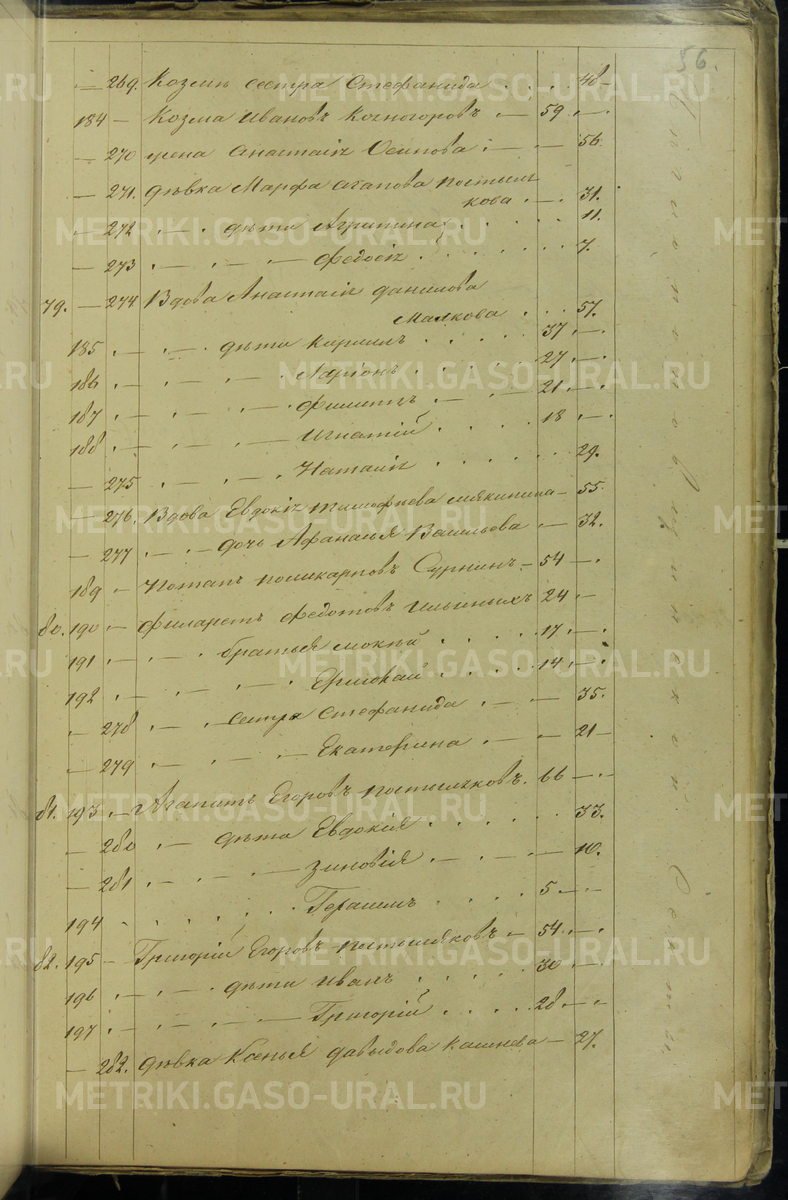 56.
— 269. Козмы сестра Стефанида . . . . 48 —
184 — Козма Ивановъ — 59 —
— 270 жена Анастасія Осипова — — 56.
— 271. дѣвка Марфа Агапова Постыля
кова . — . 31.
— 272 — дѣти Агрипина . . . . 11.
— 273 — — Федосія . . . . 7.
79. — 274 Вдова Анастасія Данилова
Малкова . . . 57.
185 — — дѣти Кирилъ . . . . 37 —
186 — — Ларіонъ . . . . 27 —
187 — — Филиппъ . — . 21 —
188 — — Игнатій . . . . 18 —
— 275 — — Наталія . . . . 29.
— 276. Вдова Евдокія Тимофеева — 55.
— 277 — дочь Афанасья Васильева — 32.
189 — Потапъ Поликарповъ Сурнинъ — 54 —
80. 190 — Филаретъ Федотовъ Ильиныхъ 24 —
191 — — братья Мокѣй . . . . 17 —
192 — — Ермолай . . . . 14 —
— 278 — сестра Стефанида — — 35.
— 279 — — Екатерина — — 21 —
81. 193 — Агапитъ Егоровъ Постыляковъ. 66 —
— 280 — дѣти Евдокія . . . . 33.
— 281 — — Зиновія — — 10.
194 . . . . Герасимъ . . . . 5 —
82. 195 — Григорій Егоровъ Постыляковъ — 54 —
196 — — дѣти Иванъ . . . . 30 —
197 — — Григорій . . . . 28 —
— 282. дѣвка Ксенья Давыдова — 27.
METRIKI.GASO-URAL.RU